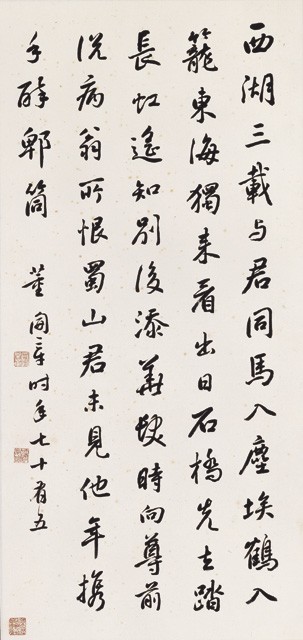 西湖三載与君同馬入塵埃鶴入
籠東海獨来看出日石橋先去踏
長虹遙知別後添華髮時向尊前
說病翁所恨蜀山君未見他年携
手醉郫筒 董開章时年七十有五